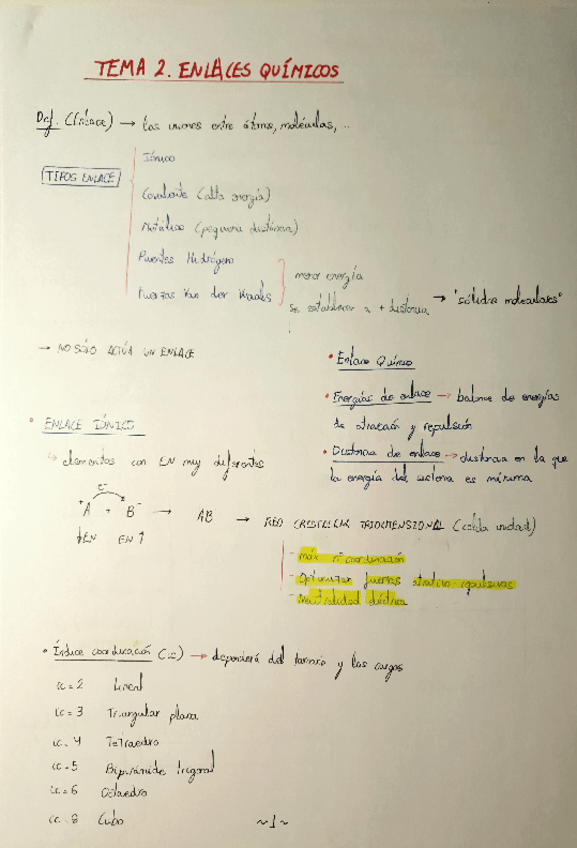 TEMA 2. ENLACES QUÍMICOS
Def. (Enlace) → Las uniones entre átomos, moléculas, ...
TIPOS ENLACE
Iónico
Covalente (alta energía)
Metálico (pequeña distancia)
Puentes Hidrógeno
Fuerzas Van der Waals
menor energía
se establecen a + distancia
→ "sólidos moleculares"
→ NO SÓLO ACTÚA UN ENLACE
• Enlace Químico
• Energías de enlace → balance de energías
de atracción y repulsión
• Distancia de enlace → distancia en la que
la energía del sistema es mínima
• ENLACE IÓNICO
↳ elementos con EN muy diferentes
e⁻
⁺A + B⁻ → AB → RED CRISTALINA TRIDIMENSIONAL (celda unidad)
↓EN EN↑
- máx nº coordinación
- Optimizar fuerzas atractivo-repulsivas
- Neutralidad eléctrica
• Índice coordinación (ic) → dependerá del tamaño y las cargas
ic = 2 Lineal
ic = 3 Triangular plana
ic = 4 Tetraedro
ic = 5 Bipirámide trigonal
ic = 6 Octaedro
ic = 8 Cubo
~1~